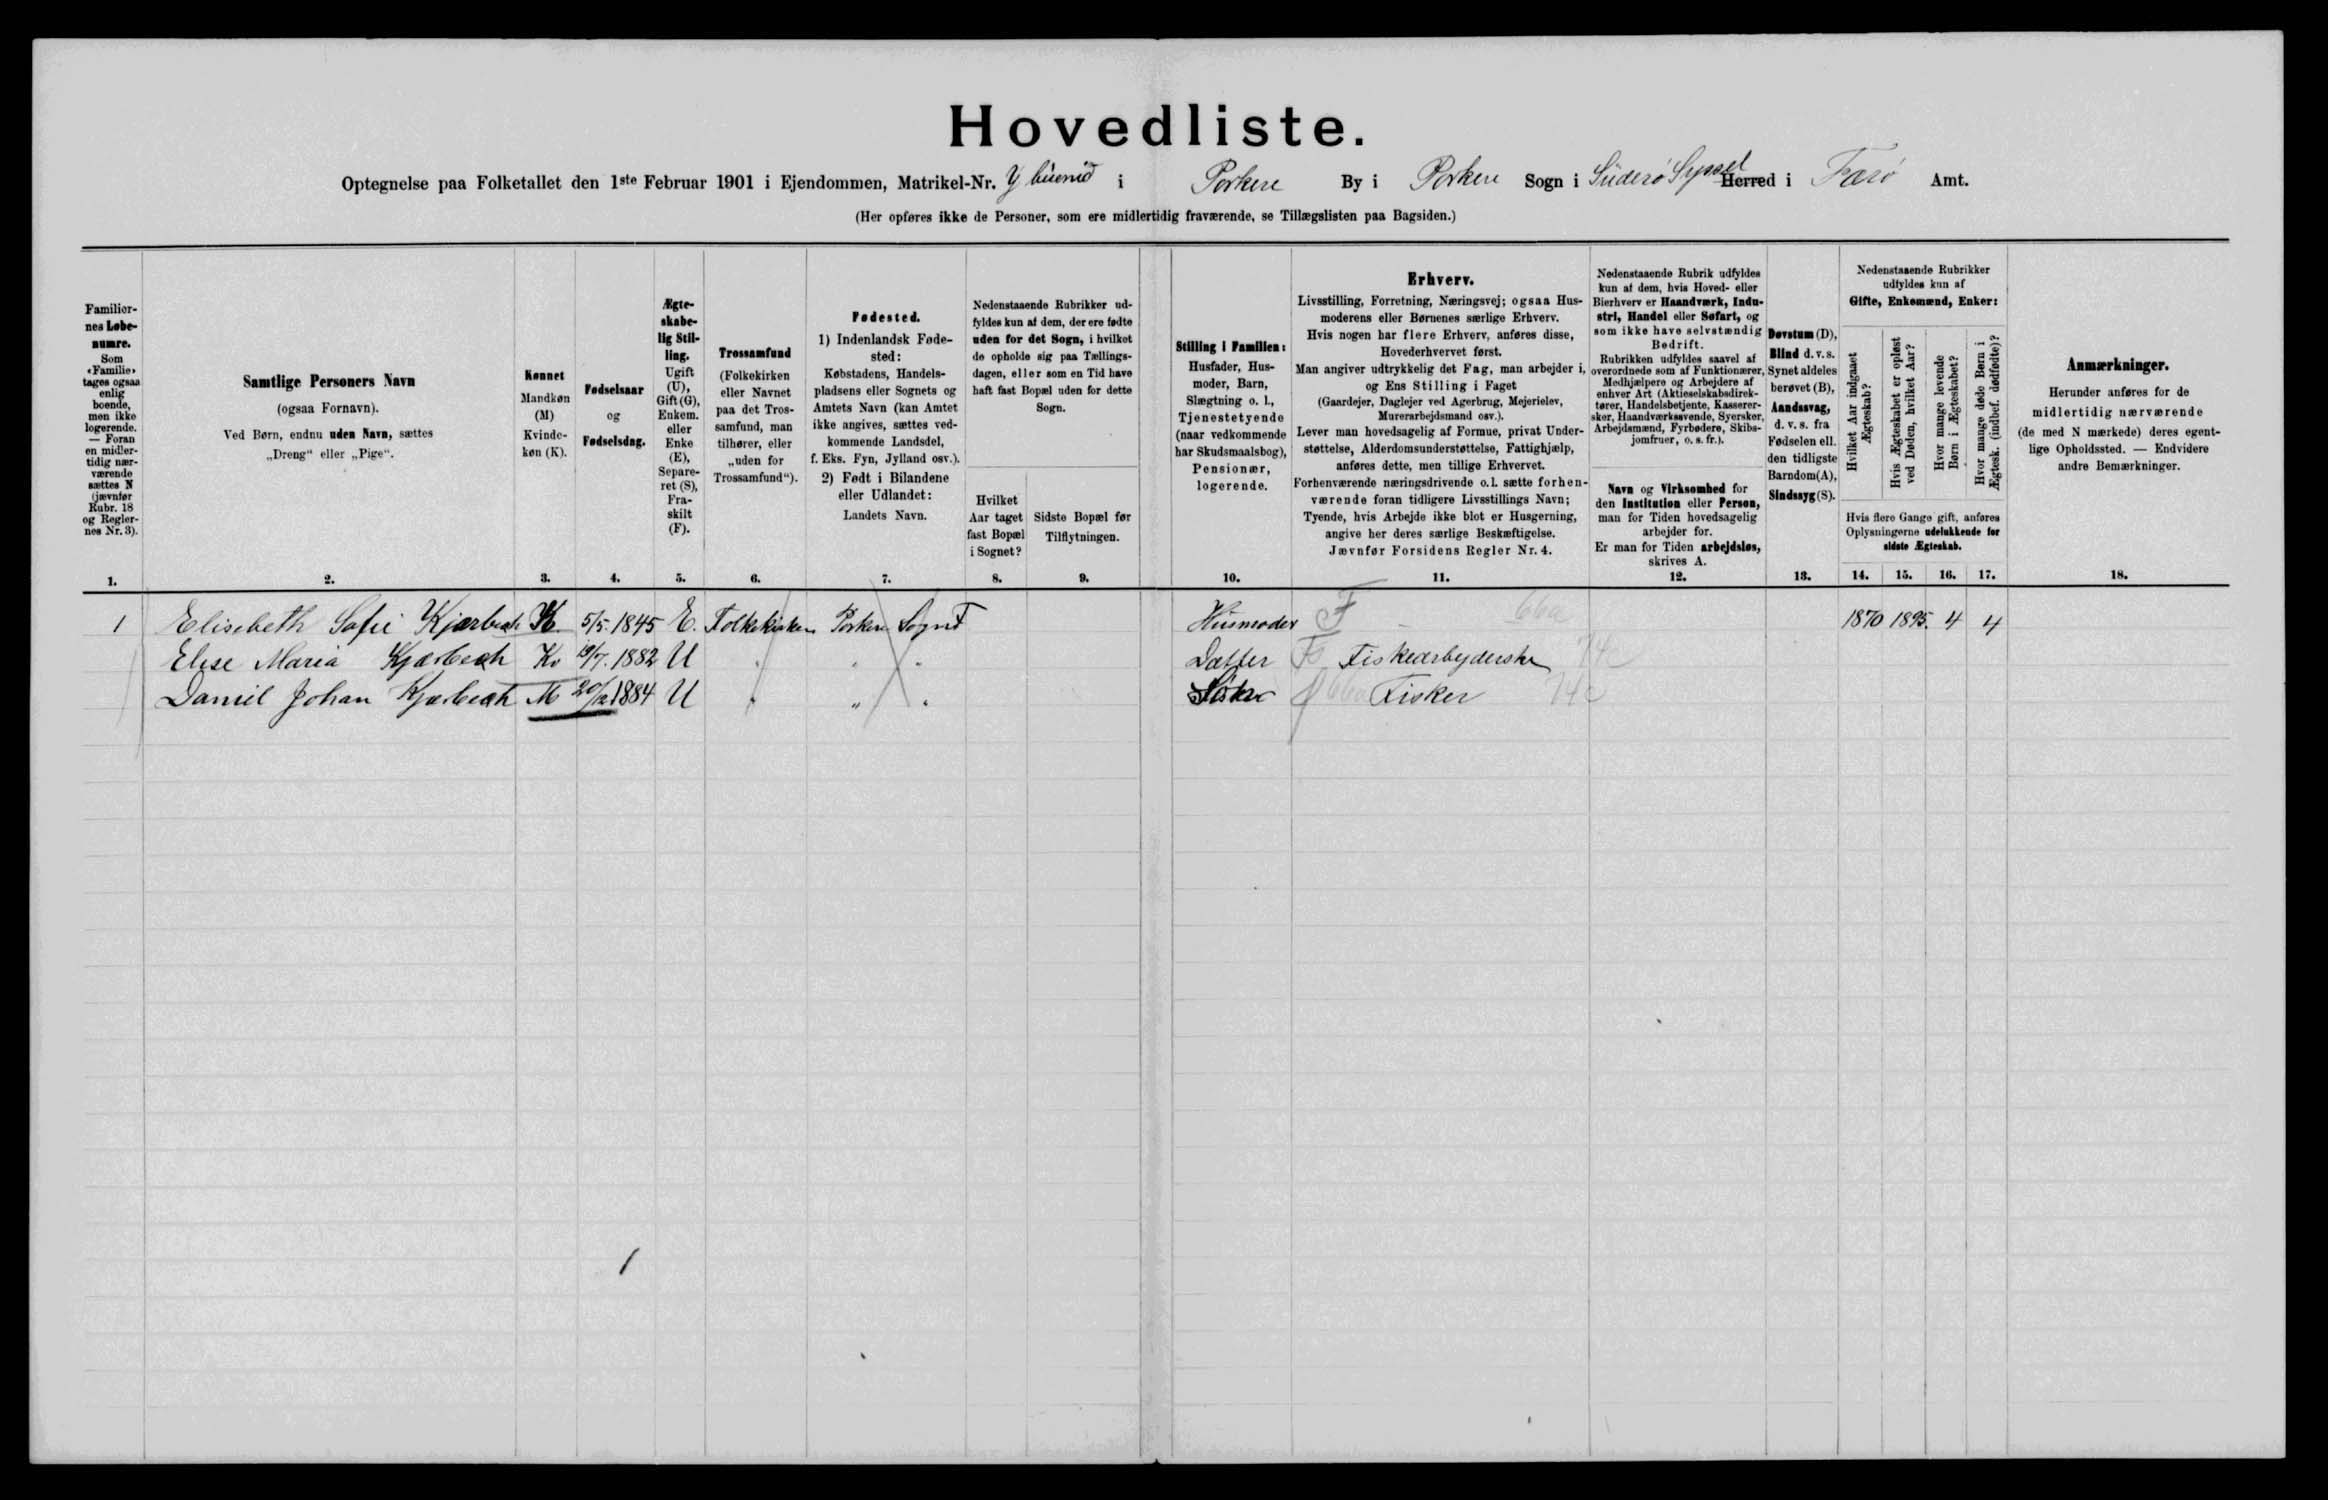 Hovedliste.
Optegnelse paa Folketallet den 1ste Februar 1901 i Ejendommen, Matrikel-Nr. i Porkere By i Porkere Sogn i Süderö Syssel Herred i Færö Amt.
(Her opføres ikke de Personer, som ere midlertidig fraværende, se Tillægslisten paa Bagsiden.)
Familier-
nes Løbe-
numre.
Som
«Familie»
tages ogsaa
enlig
boende,
men ikke
logerende.
— Foran
en midler-
tidig nær-
værende
sættes N
(jævnfør
Rubr. 18
og Regler-
nes Nr. 3).
1.
Samtlige Personers Navn
(ogsaa Fornavn).
Ved Børn, endnu uden Navn, sættes
„Dreng“ eller „Pige“.
2.
Kønnet
Mandkøn
(M)
og
Kvinde-
køn (K).
3.
Fødselsaar
og
Fødselsdag.
4.
Ægte-
skabe-
lig Stil-
ling.
Ugift
(U),
Gift (G),
Enkem.
eller
Enke
(E),
Separe-
ret (S),
Fra-
skilt
(F).
5.
Trossamfund
(Folkekirken
eller Navnet
paa det Tros-
samfund, man
tilhører, eller
„uden for
Trossamfund“).
6.
Fødested.
1) Indenlandsk Føde-
sted:
Købstadens, Handels-
pladsens eller Sognets og
Amtets Navn (kan Amtet
ikke angives, sættes ved-
kommende Landsdel,
f. Eks. Fyn, Jylland osv.).
2) Født i Bilandene
eller Udlandet:
Landets Navn.
7.
Nedenstaaende Rubrikker ud-
fyldes kun af dem, der ere fødte
uden for det Sogn, i hvilket
de opholde sig paa Tællings-
dagen, eller som en Tid have
haft fast Bopæl uden for dette
Sogn.
Hvilket
Aar taget
fast Bopæl
i Sognet?
8.
Sidste Bopæl før
Tilflytningen.
9.
Stilling i Familien:
Husfader, Hus-
moder, Barn,
Slægtning o. l.,
Tjenestetyende
(naar vedkommende
har Skudsmaalsbog),
Pensionær,
logerende.
10.
Erhverv.
Livsstilling, Forretning, Næringsvej; ogsaa Hus-
moderens eller Børnenes særlige Erhverv.
Hvis nogen har flere Erhverv, anføres disse,
Hovederhvervet først.
Man angiver udtrykkelig det Fag, man arbejder i,
og Ens Stilling i Faget
(Gaardejer, Daglejer ved Agerbrug, Mejerielev,
Murerarbejdsmand osv.).
Lever man hovedsagelig af Formue, privat Under-
støttelse, Alderdomsunderstøttelse, Fattighjælp,
anføres dette, men tillige Erhvervet.
Forhenværende næringsdrivende o. l. sætte forhen-
værende foran tidligere Livsstillings Navn;
Tyende, hvis Arbejde ikke blot er Husgerning,
angive her deres særlige Beskæftigelse.
Jævnfør Forsidens Regler Nr. 4.
11.
Nedenstaaende Rubrik udfyldes
kun af dem, hvis Hoved- eller
Bierhverv er Haandværk, Indu-
stri, Handel eller Søfart, og
som ikke have selvstændig
Bedrift.
Rubrikken udfyldes saavel af
overordnede som af Funktionærer,
Medhjælpere og Arbejdere af
enhver Art (Aktieselskabsdirek-
tører, Handelsbetjente, Kasserer-
sker, Haandværkssvende, Syersker,
Arbejdsmænd, Fyrbødere, Skibs-
jomfruer, o. s. fr.).
Navn og Virksomhed for
den Institution eller Person,
man for Tiden hovedsagelig
arbejder for.
Er man for Tiden arbejdsløs,
skrives A.
12.
Døvstum (D),
Blind d. v. s.
Synet aldeles
berøvet (B),
Aandssvag,
d. v. s. fra
Fødselen ell.
den tidligste
Barndom (A),
Sindssyg (S).
13.
Nedenstaaende Rubrikker
udfyldes kun af
Gifte, Enkemænd, Enker:
Hvilket Aar indgaaet
Ægteskab?
Hvis Ægteskabet er opløst
ved Døden, hvilket Aar?
Hvor mange levende
Børn i Ægteskabet?
Hvor mange døde Børn i
Ægtesk. (indbef. dødfødte)?
Hvis flere Gange gift, anføres
Oplysningerne udelukkende for
sidste Ægteskab.
14. 15. 16. 17.
Anmærkninger.
Herunder anføres for de
midlertidig nærværende
(de med N mærkede) deres egent-
lige Opholdssted. — Endvidere
andre Bemærkninger.
18.
1 Elisebeth Sofie Kjærbech K. 5/5. 1845 E. Folkekirken Porkere Sogn F Husmoder F – 66a 1870 1895. 4 4
Elise Maria Kjærbech Kv 19/7. 1882 U " " " Datter Fiskearbejderske 74c
Daniel Johan Kjærbech M 1884 U " " " Fisker 74c